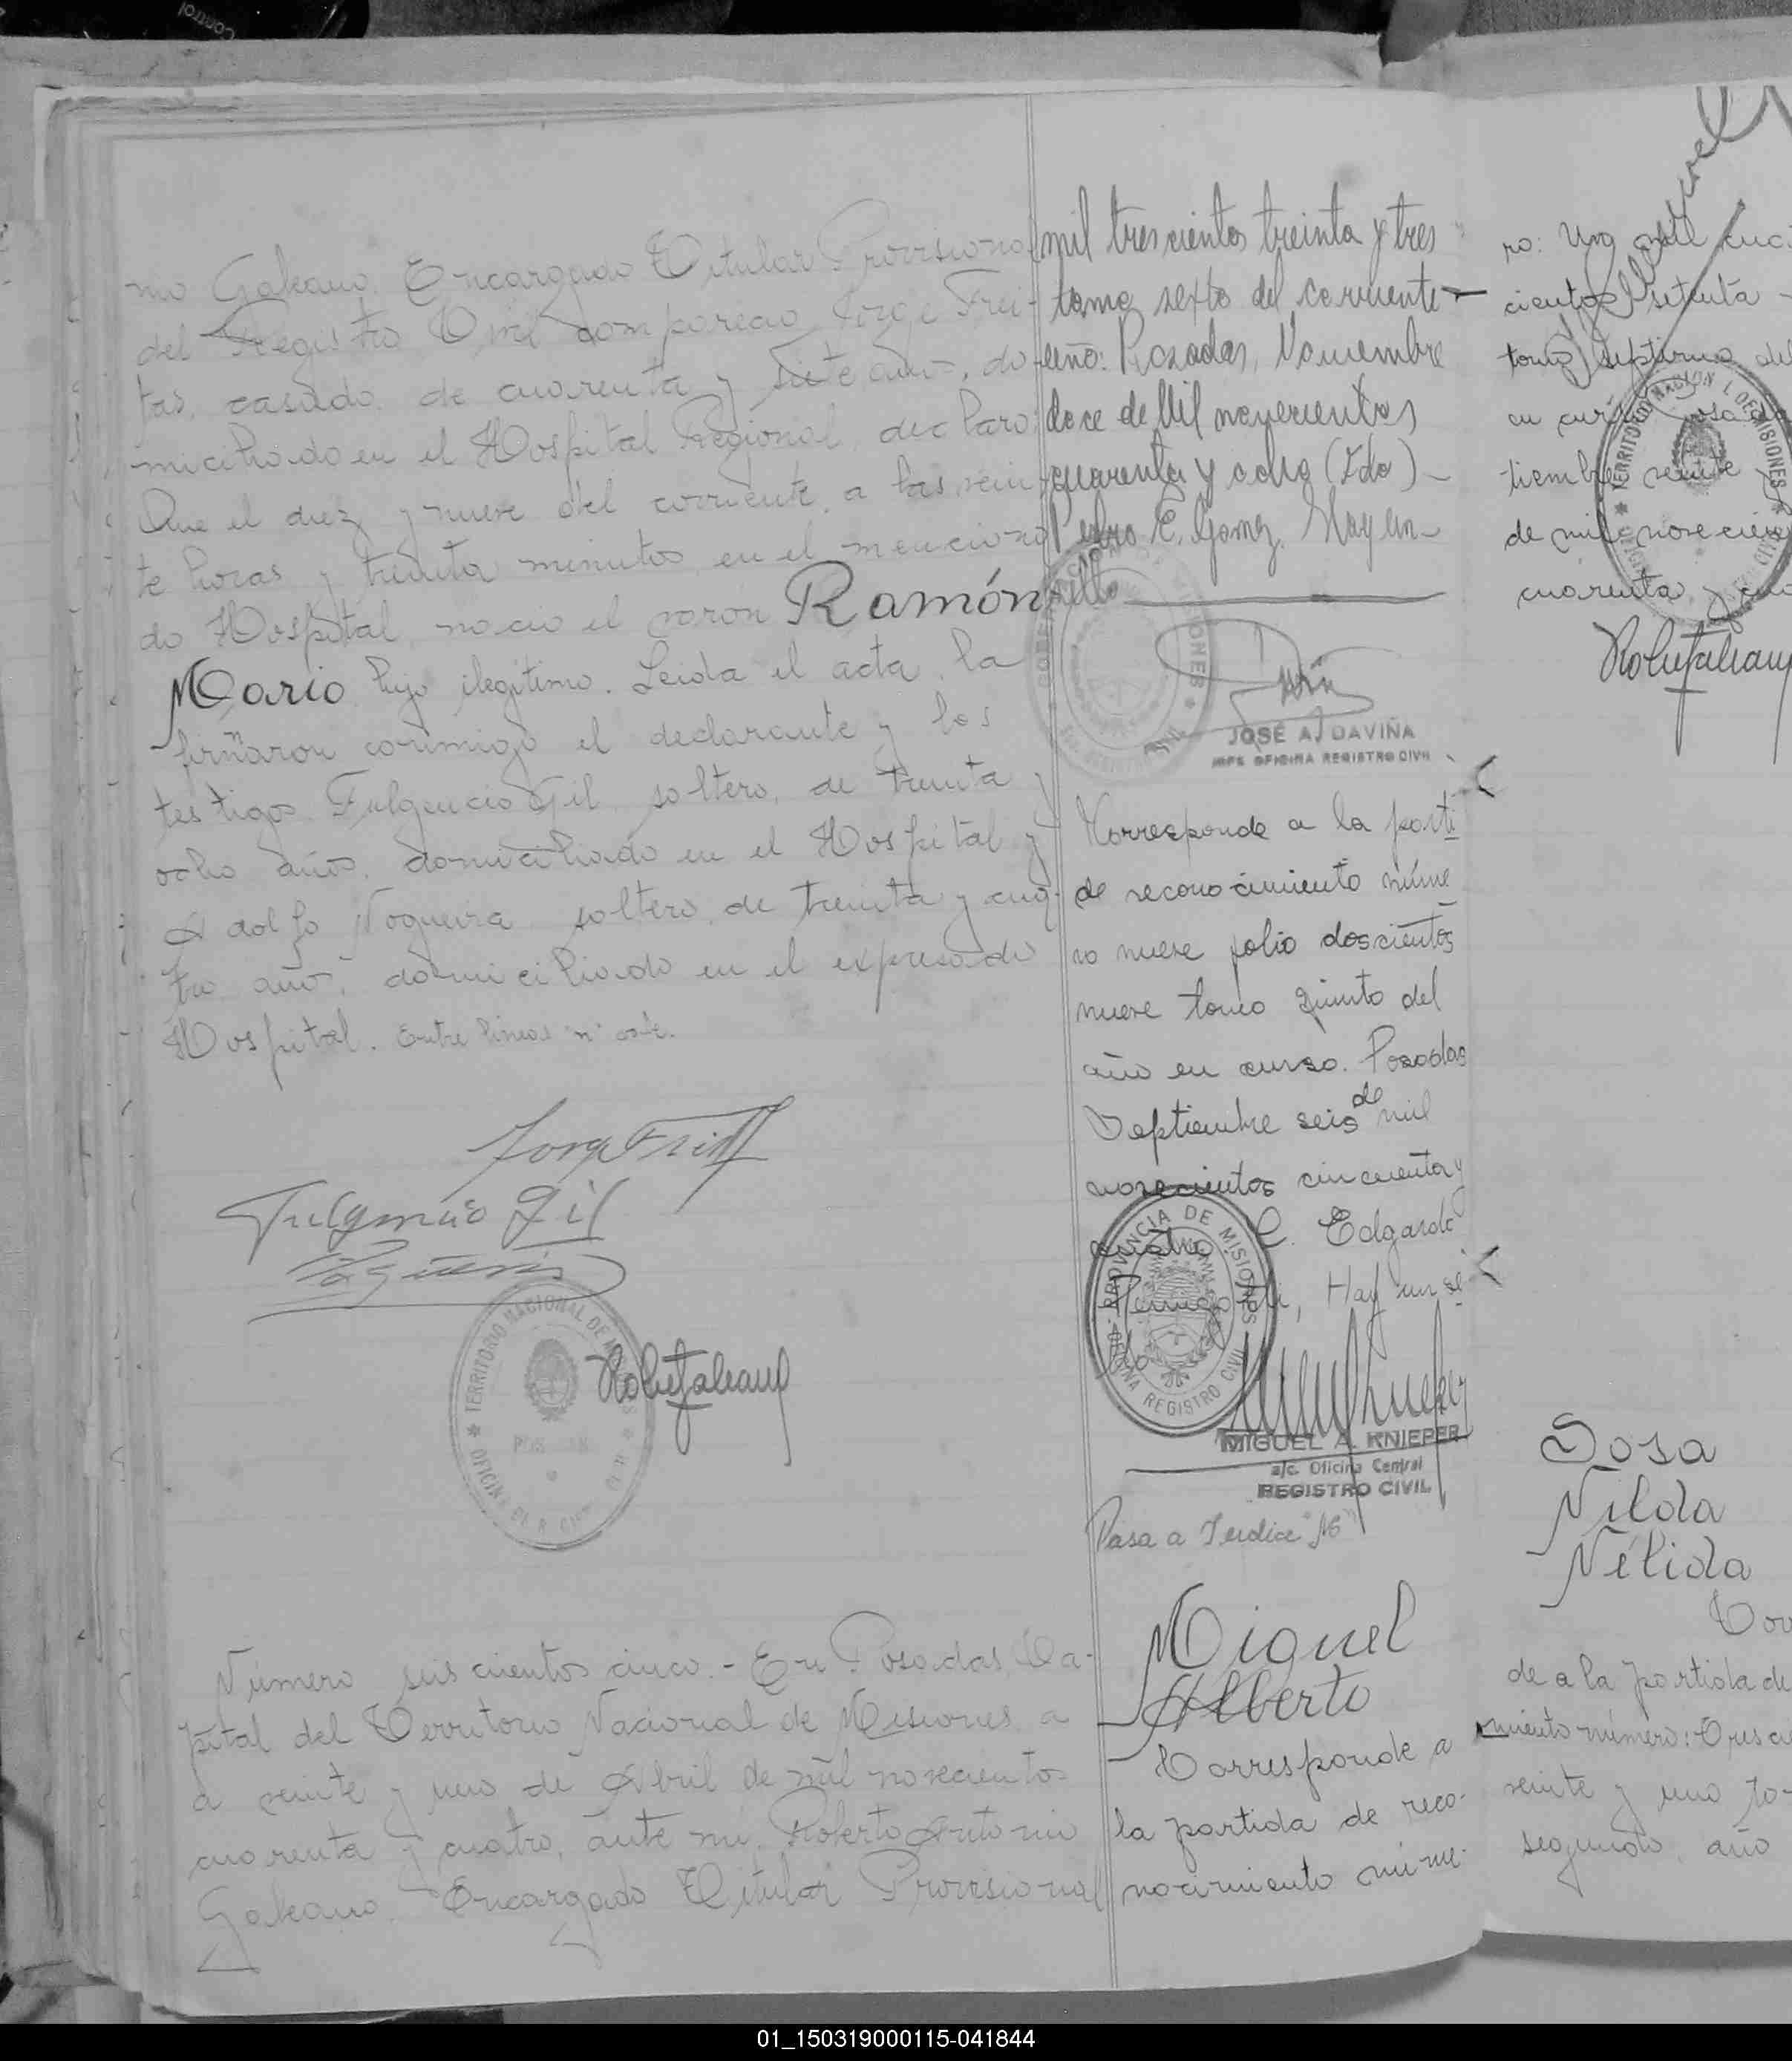 control
mo Galeano, Encargado Titular Provisional
del Registro Civil comparecio Jorge Frei-
tas, casado, de cuarenta y siete años, do-
miciliado en el Hospital Regional, declaro:
Que el diez y nueve del corriente, a las vein-
te horas y treinta minutos, en el menciona
do Hospital nacio el varon Ramón
Mario hijo ilegitimo. Leida el acta, la
firmaron conmigo el declarante y los
testigos Fulgencio Gil, soltero, de treinta y
ocho años, domiciliado en el Hospital y
Adolfo Nogueira, soltero, de treinta y cua-
tro años, domiciliado en el expresado
Hospital. Entre lineas "n" vale.
Fulgencio Gil
TERRITORIO NACIONAL DE MISIONES
OFICINA DEL R. CIVIL
Número seiscientos cinco.- En Posadas, Ca-
pital del Territorio Nacional de Misiones, a
a veinte y uno de Abril de mil novecientos
cuarenta y cuatro, ante mi, Roberto Antonio
Galeano, Encargado Titular Provisional
mil trescientos treinta y tres
tomo sexto del corriente
año: Posadas, Noviembre
doce de Mil novecientos
cuarenta y ocho (Fdo)
Pedro E. Gomez. Hay un
sello
JOSÉ A. DAVIÑA
JEFE OFICINA REGISTRO CIVIL
Corresponde a la parti
de reconocimiento núme
ro nueve folio doscientos
nueve tomo quinto del
año en curso. Posadas
Septiembre seis de mil
novecientos cincuenta y
cuatro C. Edgardo
Hay un se
llo
PROVINCIA DE MISIONES
OFICINA REGISTRO CIVIL
MIGUEL A. KNIEPER
a/c. Oficina Central
REGISTRO CIVIL
Pasa a Indice
Miguel
Alberto
Corresponde a
la partida de reco-
nocimiento núme-
ro: Un mil cua
cientos setenta
tomo septimo del
en curso
tiembre veinte
de mil novecien
cuarenta y
TERRITORIO NACIONAL DE MISIONES
Sosa
Nilda
Nélida
Cor
de a la partida de
miento número: Tresci
veinte y uno to-
segundo, año
01_150319000115-041844